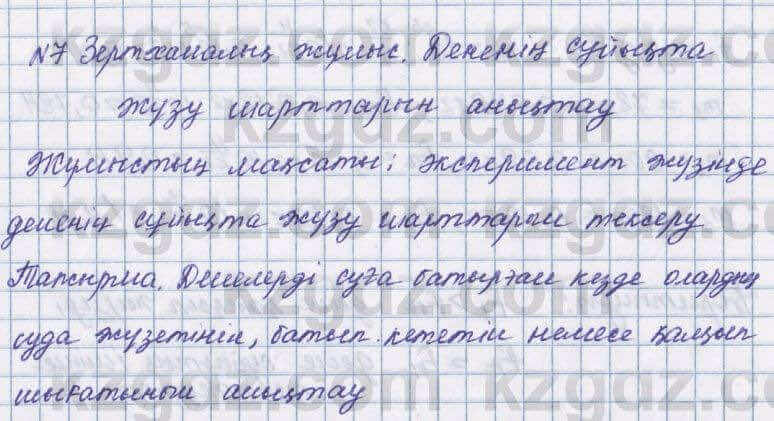 №7 Зертханалық жұмыс. Дененің сұйықта
жүзу шарттарын анықтау
Жұмыстың мақсаты: эксперимент жүзінде
дененің сұйықта жүзу шарттарын тексеру
Тапсырма. Денелерді суға батырған кезде олардың
суда жүзетінін, батып кететін немесе қалқып
шығатынын анықтау